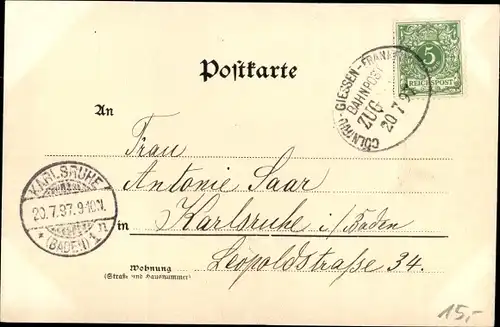 Postkarte
5
REICHSPOST
CÖLN - GIESSEN - FRANKF
BAHNPOST
ZUG
20 7 97
An
Frau
Antonie Saar
in Karlsruhe i/Baden
Leopoldstraße 34.
Wohnung
(Straße und Hausnummer)
KARLSRUHE
20.7.97. 9-10N.
* (BADEN) 1 n
15,-